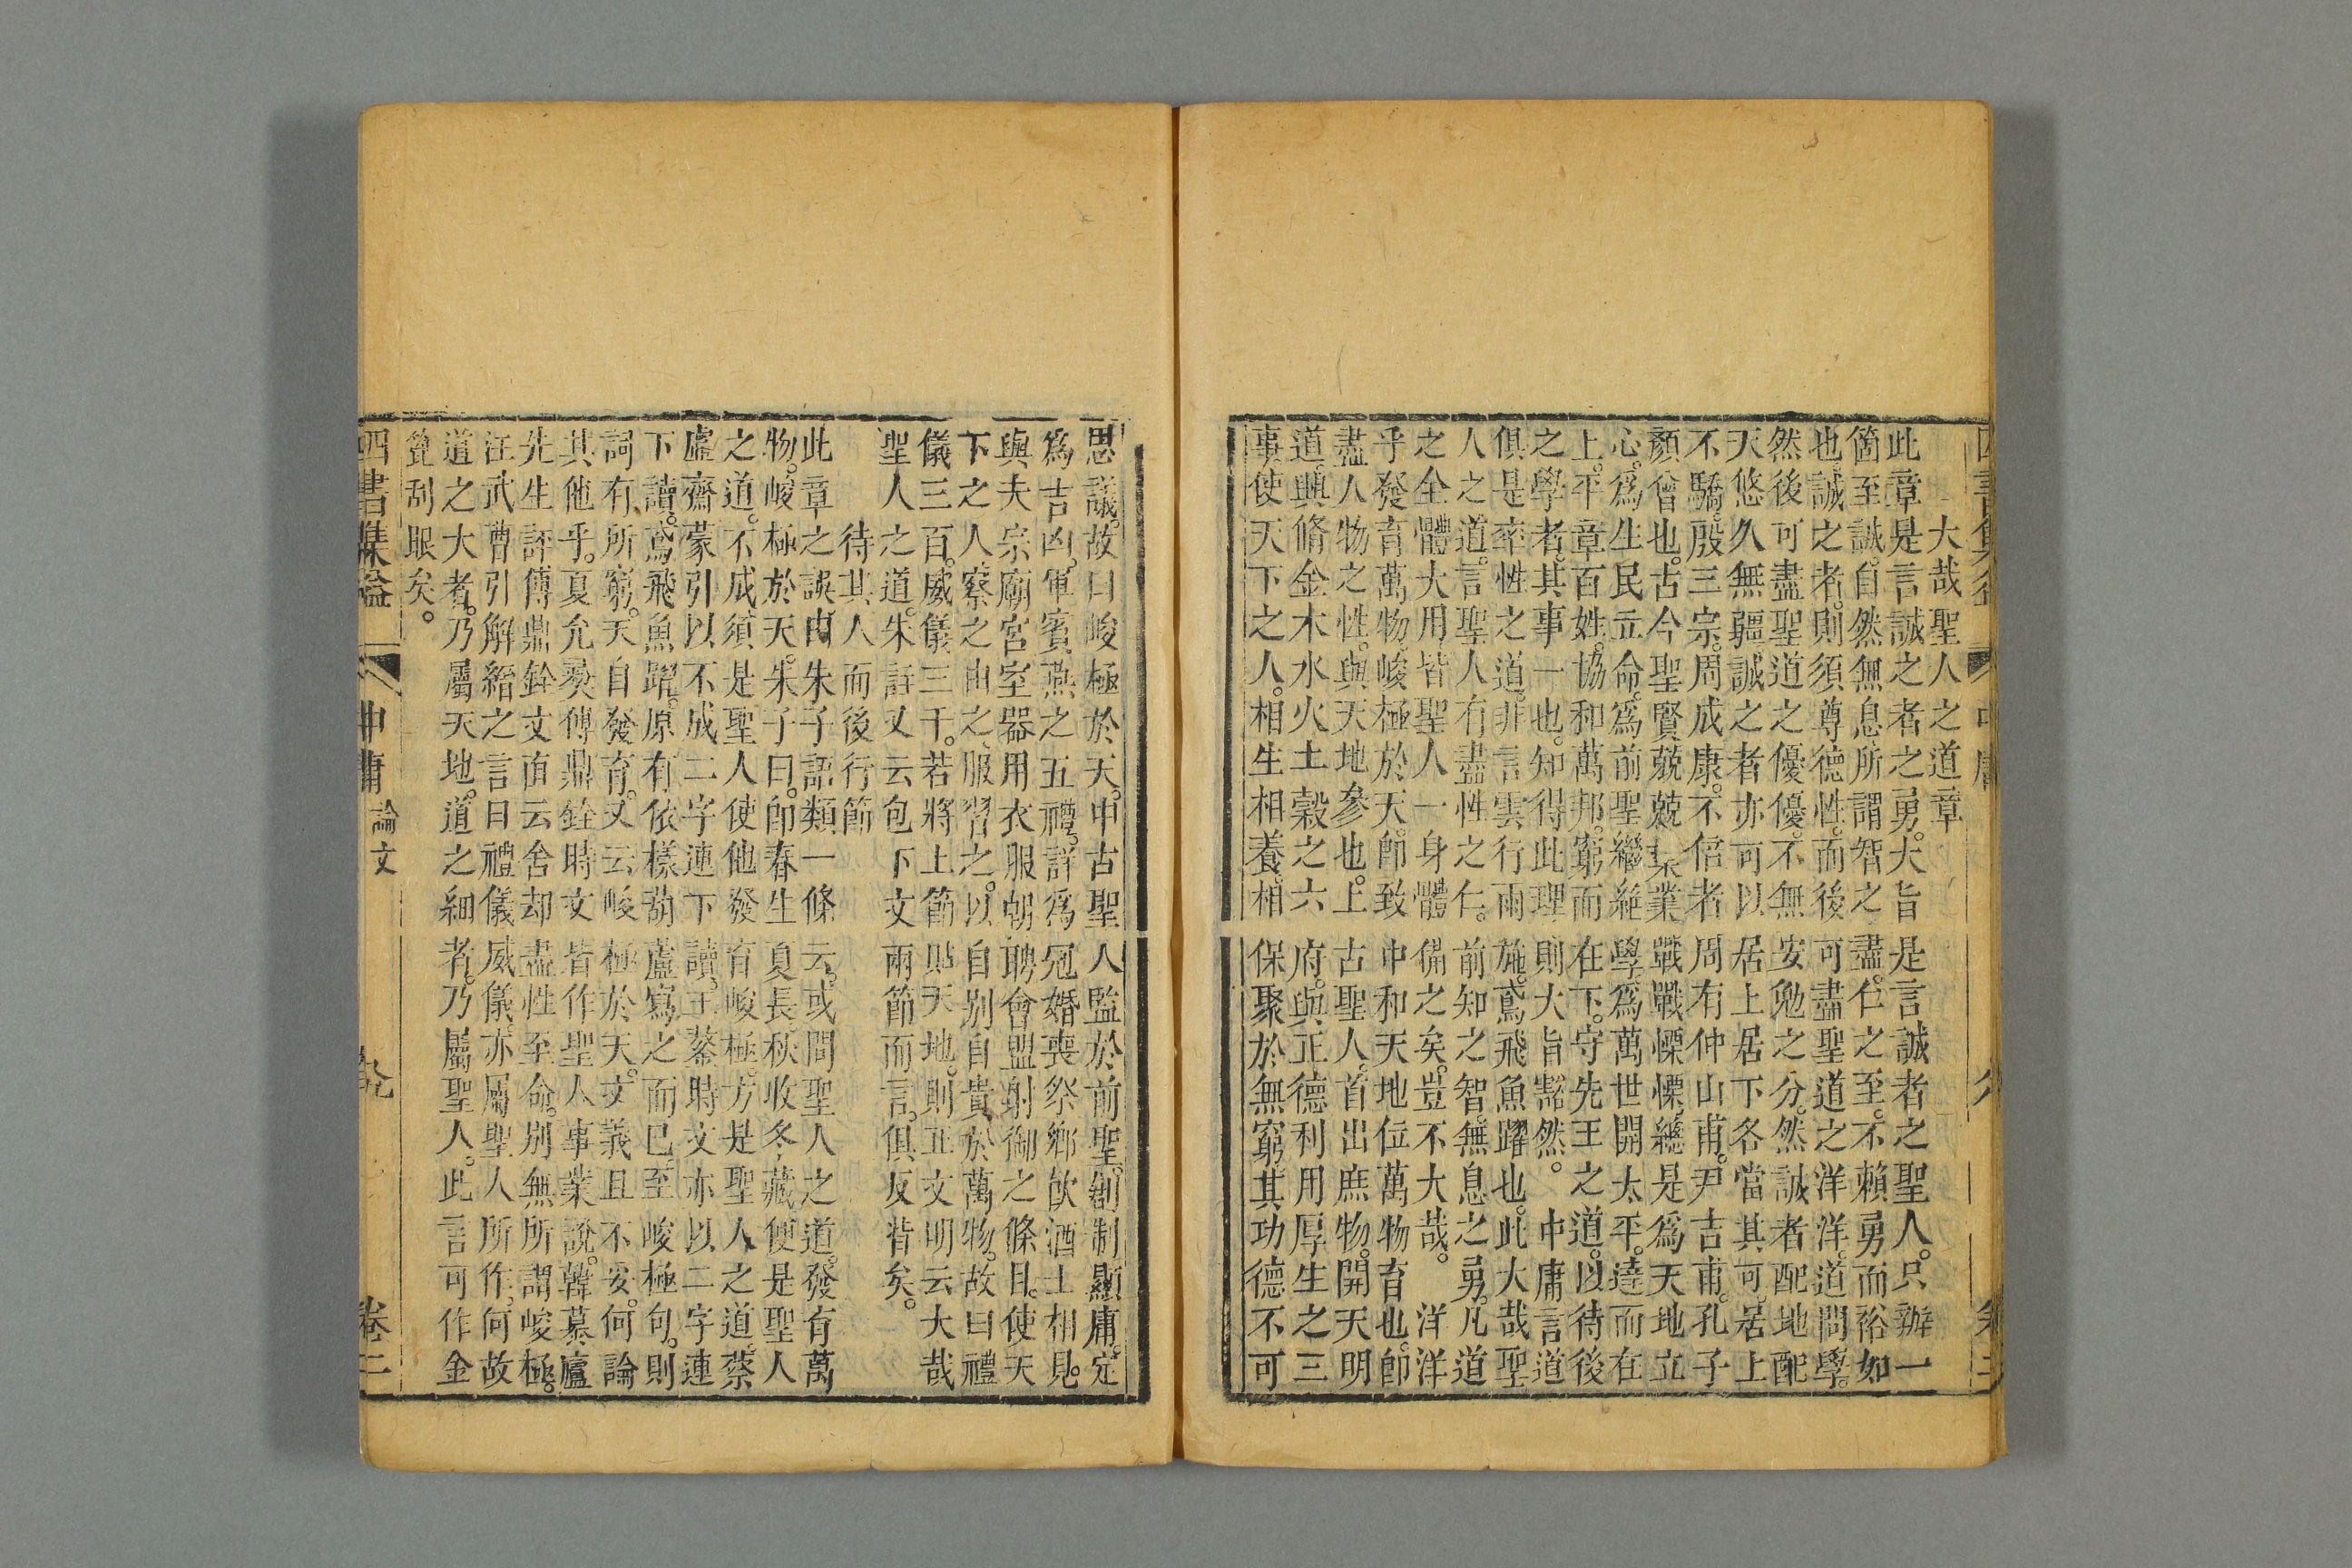 大哉聖人之道章
此章是言誠之者之勇。大旨是言誠者之聖人。只辦一
箇至誠。自然無息。所謂智之盡。仁之至。不賴勇而裕如
也。誠之者。則須尊德性。而後可盡聖道之洋洋。道問學。
然後可盡聖道之優優。不無安勉之分。然誠者配地配
天悠久無疆。誠之者亦可以居上居下各當其可。居上
不驕。殷三宗。周成康。不倍者周有仲山甫。尹吉甫。孔子
顏曾也。古今聖賢兢兢業業戰戰慄慄。總是爲天地立
心。爲生民立命。爲前聖繼絕學。爲萬世開太平。達而在
上。平章百姓。協和萬邦。窮而在下。守先王之道。以待後
之學者。其事一也。知得此理則大旨豁然。 中庸言道
俱是率性之道。非言雲行雨施。鳶飛魚躍也。此大哉聖
人之道。言聖人有盡性之仁。前知之智。無息之勇。凡道
之全體大用皆聖人一身體備之矣。豈不大哉。 洋洋
乎發育萬物。峻極於天。卽致中和天地位萬物育也。卽
盡人物之性。與天地參也。上古聖人。首出庶物。開天明
道。與脩金木水火土穀之六府。與正德利用厚生之三
事。使天下之人。相生相養。相保聚於無窮。其功德不可
思議。故曰峻極於天。中古聖人監於前聖。創制顯庸。定
爲吉凶。軍賓燕之五禮。詳爲冠婚喪祭鄉飲酒士相見。
與夫宗廟宮室器用衣服朝聘會盟射御之條目。使天
下之人。察之由之服習之。以自別自貴於萬物。故曰禮
儀三百。威儀三千。若將上節貼天地。則正文明云大哉
聖人之道。朱註又云包下文兩節而言。俱反背矣。
待其人而後行節
此章之誤由朱子語類一條云。或問聖人之道。發育萬
物。峻極於天。朱子曰。卽春生夏長秋收冬藏便是聖人
之道。不成須是聖人使他發育峻極。方是聖人之道。蔡
虛齋蒙引以不成二字連下讀。王鏊時文亦以二字連
下讀。鳶飛魚躍。原有依樣葫蘆寫之而已。至峻極句。則
詞有所窮。天自發育。又云峻極於天。文義且不安。何論
其他乎。夏允彝傅鼎銓時文皆作聖人事業說。韓慕廬
先生評傅鼎銓文而云舍却盡性至命。別無所謂峻極。
汪武曹引解縉之言曰禮儀威儀。亦屬聖人所作。何故
道之大者。乃屬天地。道之細者。乃屬聖人。此言可作金
篦刮眼矣。
四書集益 中庸 論文 九 卷二